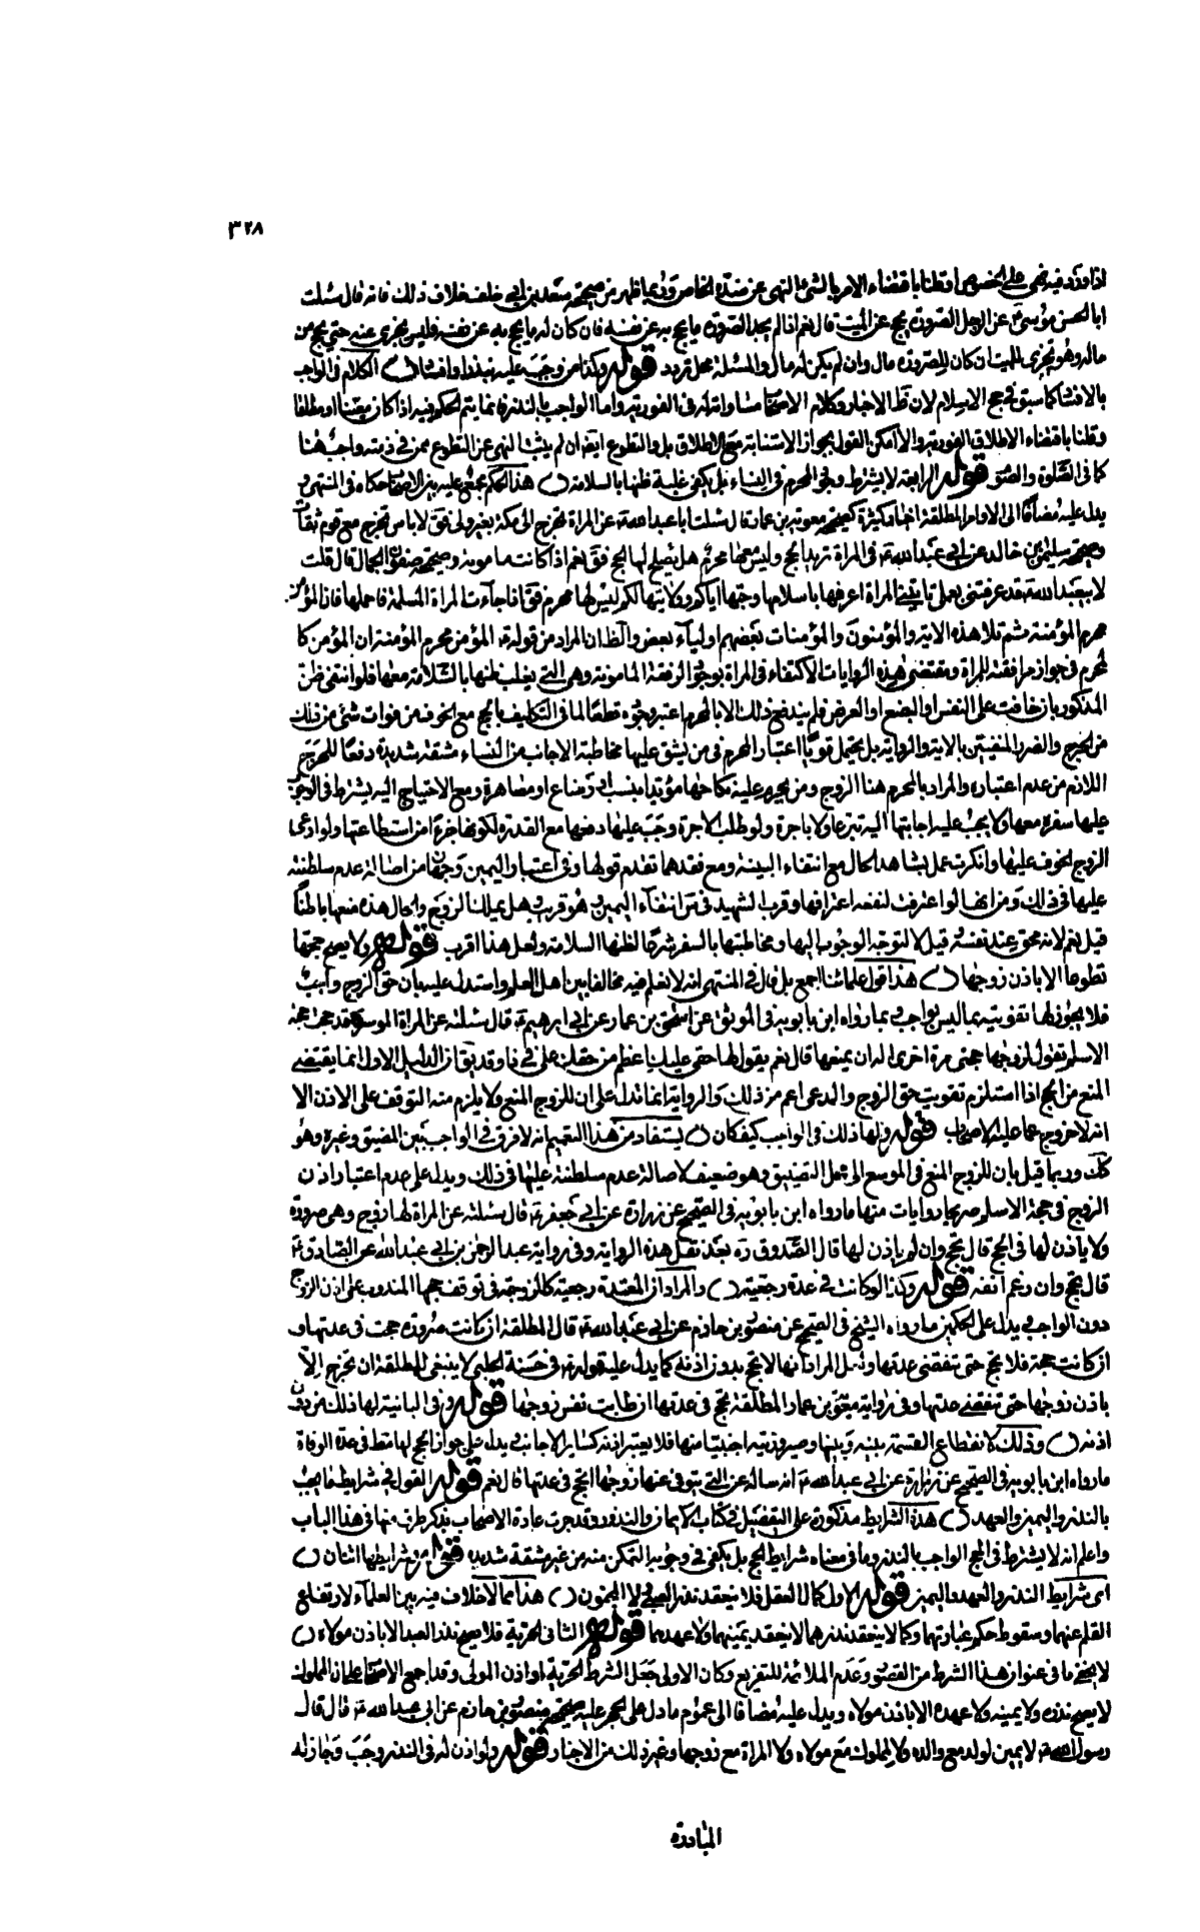 ٣٢٨
اذا ورد فيه نهى على الخصوص او قلنا باقتضاء الامر بالشئ النهى عن ضده الخاص وربما ظهر من صحيحة سعد بن ابى خلف خلاف ذلك فانه قال سئلت
ابا الحسن موسى عن الرجل الصرورة يحج عن الميت قال نعم اذا لم يجد الصرورة ما يحج به عن نفسه فان كان له ما يحج به عن نفسه فليس يجزى عنه حتى يحج من
ماله وهو تجزى للميت ان كان للصرورة مال وان لم يكن له مال والمسئلة محل تردد قوله وكذا من وجب عليه بنذر او افساد الكلام فى الواجب
بالافساد كما سبق فى حج الاسلام لان الاخبار وكلام الاصحاب متساو فى الفورية واما الواجب بالنذر فانما يتم الحكم فيه اذا كان معينا او مطلقا
وقلنا باقتضاء الاطلاق الفورية والا امكن القول بجواز الاستنابة مع الاطلاق بل والتطوع ايضا ان لم يثبت النهى عن التطوع ممن فى ذمته واجب هنا
كما فى الصلوة والصوم قوله الرابعة لا يشترط وجود المحرم فى النساء بل يكفى غلبة ظنها بالسلامة هذا الحكم مجمع عليه بين الاصحاب حكاه فى المنتهى و
يدل عليه مضافا الى الاوامر المطلقة اخبار كثيرة كصحيحة معوية بن عمار قال سئلت ابا عبد الله ع عن المراة تخرج الى مكة بغير ولى فق لا باس تخرج مع قوم ثقات
وصحيحة سليمان بن خالد عن ابى عبد الله ع فى المراة تريد الحج وليس معها محرم هل يصلح لها الحج فق نعم اذا كانت مامونة وصحيحة صفوان الجمال قال قلت
لابيعبد الله ع قد عرفتنى بعملى تاتينى المراة اعرفها باسلامها وحبها اياكم وولايتها لكم ليس لها محرم فق اذا جاءت المراة المسلمة فاحملها فان المؤمن
محرم المؤمنة ثم تلا هذه الاية والمؤمنون والمؤمنات بعضهم اولياء بعض والظ ان المراد من قوله ع المؤمن محرم المؤمنة ان المؤمن كا
لمحرم فى جواز مرافقته للمراة ومقتضى هذه الروايات الاكتفاء فى المراة بوجود الرفقة المامونة وهى التى يغلب ظنها بالسلامة معها فلو انتفى ظن
المذكور بان خافت على النفس او البضع او العرض فلم يندفع ذلك الا بالمحرم اعتبر وجوده قطعا لما فى التكليف بالحج مع الخوف من فوات شئ من ذلك
من الحرج والضرر المنفيين بالاية والرواية بل يحتمل قويا اعتبار المحرم فى من يشق عليها مخاطبة الاجانب من النساء مشقة شديدة دفعا للحرج
اللازم من عدم اعتباره والمراد بالمحرم هنا الزوج ومن يحرم عليه نكاحها مؤبدا بنسب او رضاع او مصاهرة ومع الاحتياج اليه يشترط فى الوجوب
عليها سفره معها ولا يجب عليه اجابتها اليه تبرعا ولا باجرة ولو طلب الاجرة وجب عليها دفعها مع القدرة لكونها جزءا من استطاعتها ولو ادعى
الزوج الخوف عليها وانكرت عمل بشاهد الحال مع انتفاء البينة ومع فقدهما تقدم قولها وفى اعتبار اليمين وجهان من اصالة عدم سلطنته
عليها فى ذلك ومن انها لو اعترفت لنفعه اعترافها وقرب الشهيد فى س انتفاء اليمين وهو قريب وهل يملك الزوج والحال هذه منعها باطنا
قيل نعم لانه محق عند نفسه قيل لا لتوجه الوجوب اليها ومخاطبتها بالسفر شرعا لظنها السلامة ولعل هذا اقرب قوله ولا يصح حجها
تطوعا الا باذن زوجها هذا قول علمائنا اجمع بل قال فى المنتهى انه لا نعلم فيه مخالفا بين اهل العلم واستدل عليه بان حق الزوج واجب
فلا يجوز لها تفويته بما ليس بواجب وبما رواه ابن بابويه فى الموثق عن اسحق بن عمار عن ابى ابرهيم ع قال سئلته عن المراة الموسرة قد حجت حجة
الاسلام تقول لزوجها حجنى مرة اخرى اله ان يمنعها قال نعم يقول لها حقى عليك اعظم من حقك على فى ذا وقد يق ان الدليل الاول انما يقتضى
المنع من الحج اذا استلزم تفويت حق الزوج والمدعى اعم من ذلك والرواية انما تدل على ان للزوج المنع ولا يلزم منه التوقف على الاذن الا
انه لا خروج عما عليه الاصحاب قوله ولها ذلك فى الواجب كيف كان يستفاد من هذا التعميم انه لا فرق فى الواجب بين المضيق وغيره وهو
كك وربما قيل بان للزوج المنع فى الموسع الى محل التضييق وهو ضعيف لاصالة عدم سلطنته عليها فى ذلك ويدل على عدم اعتبار اذن
الزوج فى حجة الاسلام صريحا روايات منها ما رواه ابن بابويه فى الصحيح عن زرارة عن ابى جعفر ع قال سئلته عن المراة لها زوج وهى صرورة
ولا ياذن لها فى الحج قال تحج وان لم ياذن لها قال الصدوق ره بعد نقل هذه الرواية وفى رواية عبد الرحمن بن ابى عبد الله عن الصادق ع
قال تحج وان رغم انفه قوله وكذا لو كانت فى عدة رجعية والمراد ان المعتدة رجعية كالزوجة فى توقف حجها المندوب على اذن الزوج
دون الواجب يدل على الحكمين ما رواه الشيخ فى الصحيح عن منصور بن حازم عن ابى عبد الله ع قال المطلقة ان كانت صرورة حجت فى عدتها و
ان كانت حجت فلا تحج حتى تقضى عدتها ولعل المراد انها لا تحج بدون اذنه كما يدل عليه قوله ع فى حسنة الحلبى لا ينبغى للمطلقة ان تخرج الا
باذن زوجها حتى تنقضى عدتها وفى رواية معوية بن عمار المطلقة تحج فى عدتها ان طابت نفس زوجها قوله وفى البائنة لها ذلك من دون
اذنه وذلك لانقطاع العصمة بينه وبينها وصيرورته اجنبيا منها فلا يعتبر اذنه كساير الاجانب يدل على جواز الحج لها مط فى عدة الوفاة
ما رواه ابن بابويه فى الصحيح عن زرارة عن ابى عبد الله ع انه ساله عن التى يتوفى عنها زوجها اتحج فى عدتها قال نعم قوله القول فى شرايط ما يجب
بالنذر واليمين والعهد هذه الشرايط مذكورة على التفصيل فى كتاب الايمان والنذور وقد جرت عادة الاصحاب بذكر طرف منها فى هذا الباب
واعلم انه لا يشترط فى الحج الواجب بالنذر وما فى معناه شرايط الحج بل يكفى فى وجوبه التمكن منه من غير مشقة شديدة قوله وشرايطها اثنان
اى شرايط النذر والعهد واليمين قوله الاول كمال العقل فلا ينعقد نذر الصبى ولا المجنون هذا مما لا خلاف فيه بين العلماء لارتفاع
القلم عنهما وسقوط حكم عبارتهما وكما لا ينعقد نذرهما لا ينعقد يمينهما ولا عهدهما قوله الثانى الحرية فلا يصح نذر العبد الا باذن مولاه
لا يخفى ما فى عنوان هذا الشرط من القصور وعدم الملائمة للتفريع وكان الاولى جعل الشرط الحرية او اذن المولى وقد اجمع الاصحاب على ان المملوك
لا يصح نذره ولا يمينه ولا عهده الا باذن مولاه ويدل عليه مضافا الى عموم ما دل على الحجر عليه صحيحة منصور بن حازم عن ابى عبد الله ع قال قال
رسول الله ص لا يمين لولد مع والده ولا لمملوك مع مولاه ولا للمراة مع زوجها وغير ذلك من الاخبار قوله ولو اذن له فى النذر وجب وجاز له
المبادرة